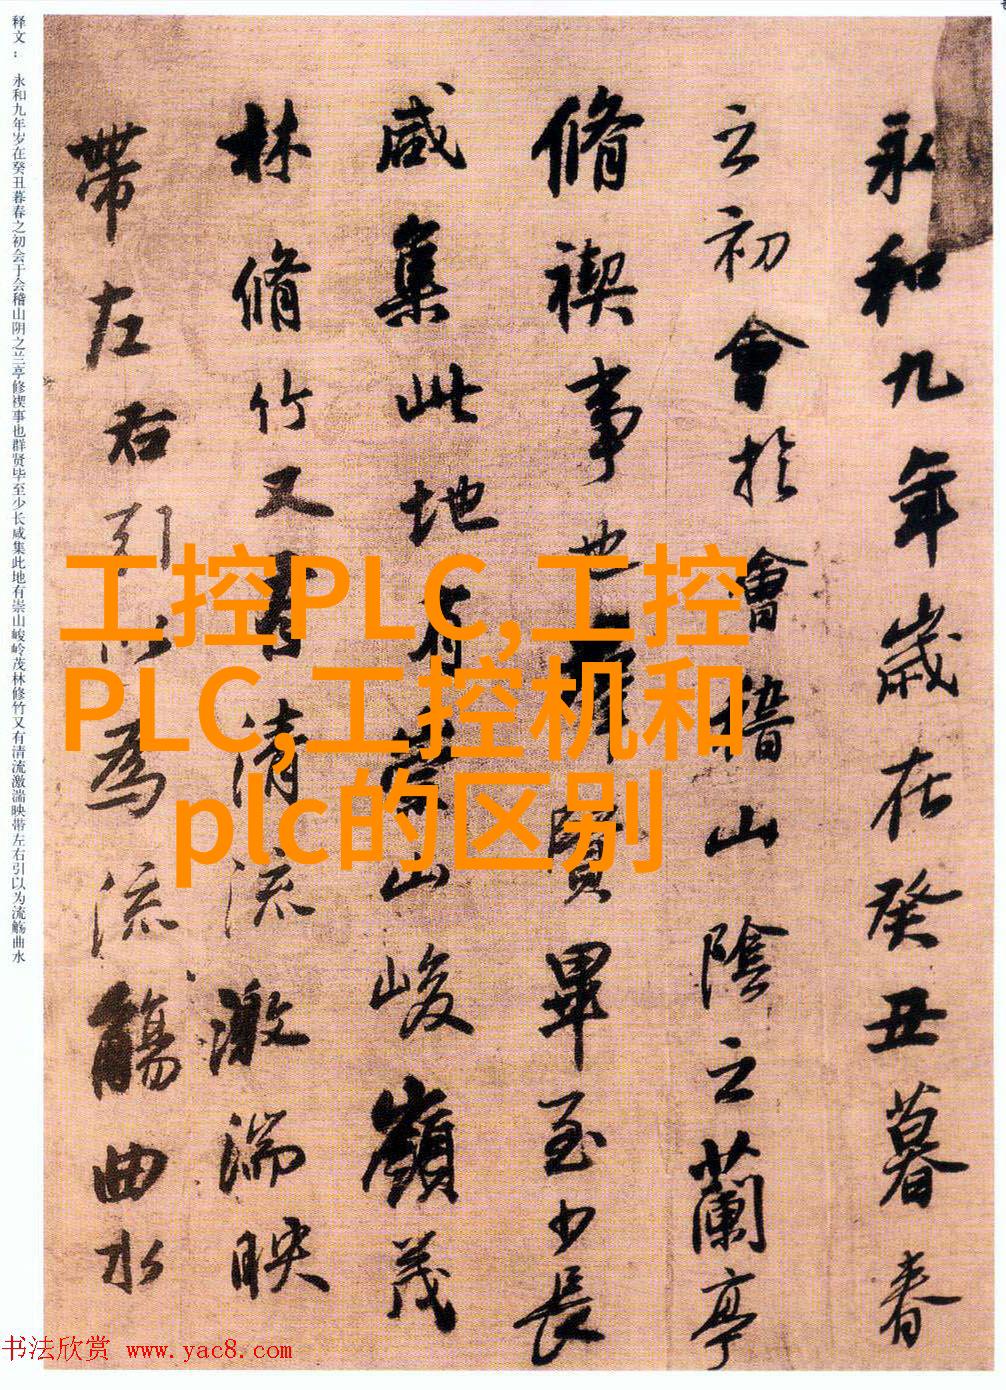 释文：永和九年岁在癸丑暮春之初会于会稽山阴之兰亭修禊事也群贤毕至少长咸集此地有崇山峻岭茂林修竹又有清流激湍映带左右引以为流觞曲水
永和九年歲在癸丑暮春
之初會於會稽山陰之蘭亭
脩禊事也群賢畢至少長
咸集此地有崇山峻嶺茂
林脩竹又有清流激湍映
帶左右引以為流觴曲水
工控PLC,工控
PLC,工控机和
plc的区别
书法欣赏 www.yac8.com